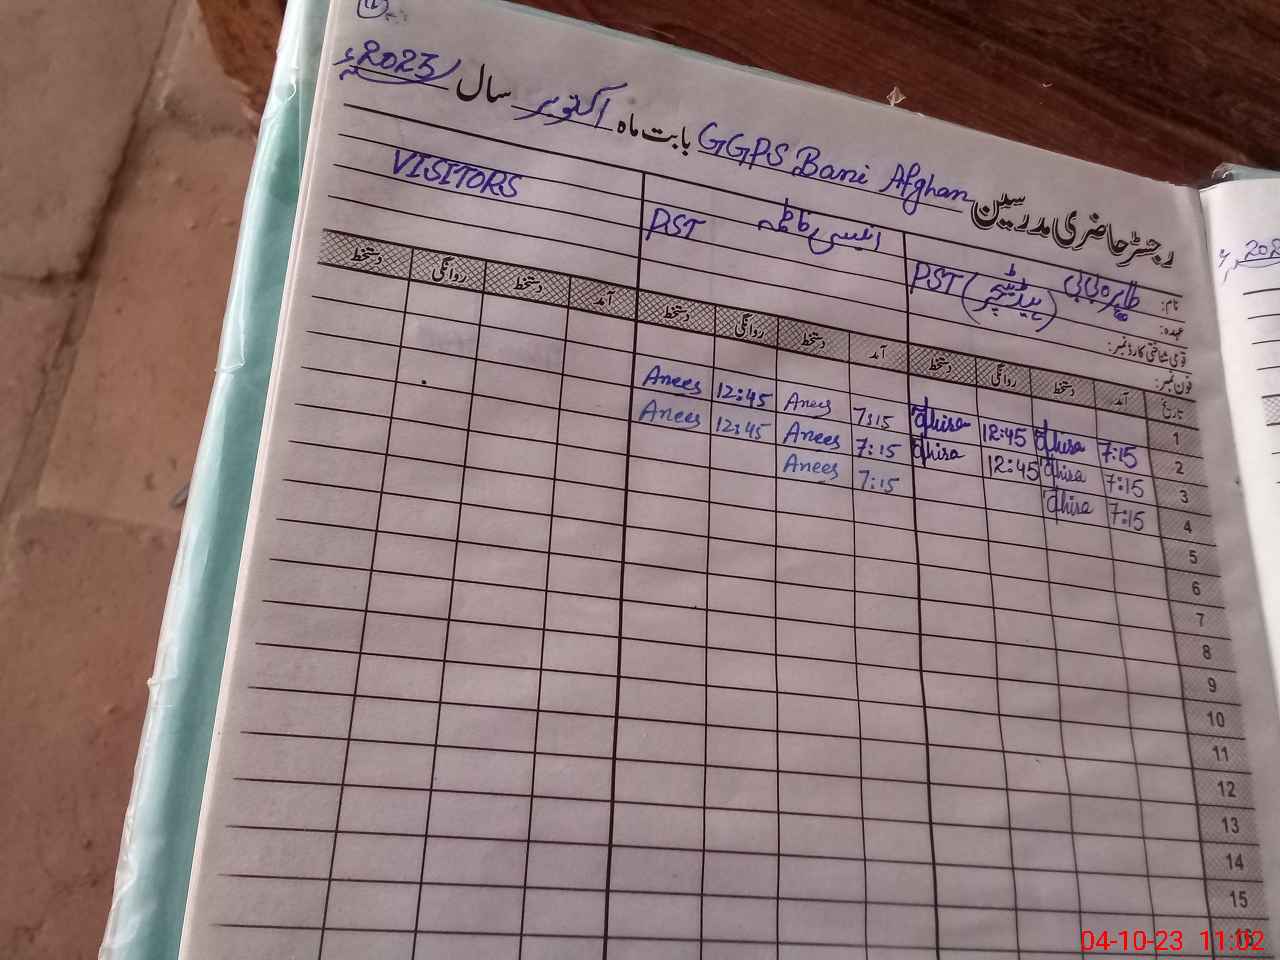 رجسٹر حاضری مدرسین GGPS Bani Afghan بابت ماہ اکتوبر سال 2023ء
نام: طاہرہ بی بی انیس فاطمہ VISITORS
عہدہ: PST (ہیڈ ٹیچر) PST
قومی شناختی کارڈ نمبر:
فون نمبر:
تاریخ آمد دستخط روانگی دستخط آمد دستخط روانگی دستخط آمد دستخط روانگی دستخط
1
2 7:15 12:45 7:15 Anees 12:45 Anees
3 7:15 12:45 7:15 Anees 12:45 Anees
4 7:15 7:15 Anees
5
6
7
8
9
10
11
12
13
14
15
16
04-10-23 11:02